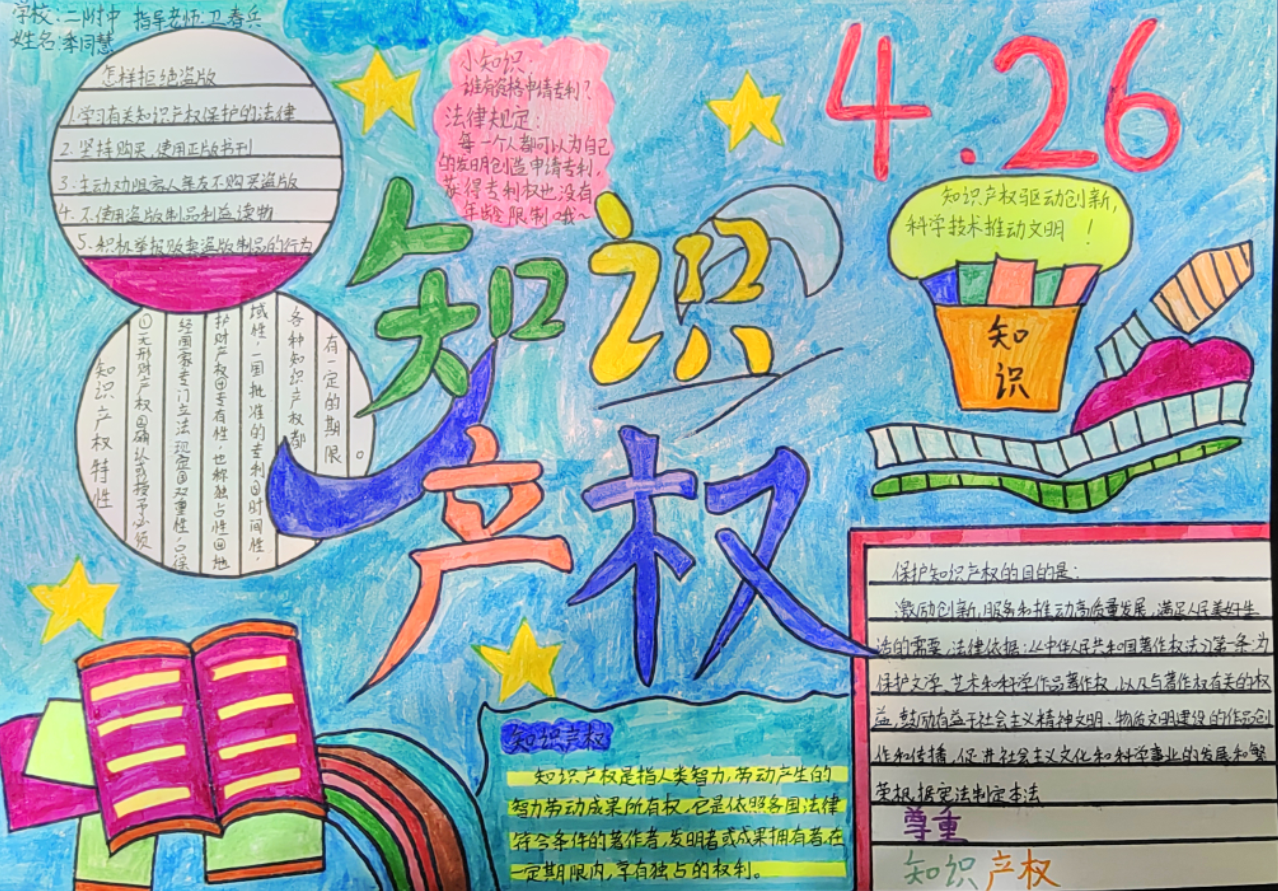 学校：二附中 指导老师：卫春兵
姓名：李同慧
怎样拒绝盗版
1.学习有关知识产权保护的法律
2.坚持购买，使用正版书刊
3.主动劝阻亲人亲友不购买盗版
4.不使用盗版制品和盗读物
5.积极举报贩卖盗版制品的行为
小知识：
谁有资格申请专利？
法律规定：
每一个人都可以为自己
的发明创造申请专利，
获得专利权也没有
年龄限制哦~
4.26
知识产权驱动创新，
科学技术推动文明！
知
识
知识
产权
知识产权特性
①无形财产权②确认或授予必须
经国家专门立法规定③双重性，
护财产权④专有性，也称独占性⑤地
域性，一国批准的专利⑥时间性，
各种知识产权都
有一定的期限。
保护知识产权的目的是：
激励创新，服务和推动高质量发展，满足人民美好生
活的需要，法律依据：《中华人民共和国著作权法》第一条为
保护文学、艺术和科学作品著作权，以及与著作权有关的权
益，鼓励有益于社会主义精神文明、物质文明建设的作品创
作和传播，促进社会主义文化和科学事业的发展和繁
荣，根据宪法制定本法
尊重
知识产权
知识产权
知识产权是指人类智力，劳动产生的
智力劳动成果所有权，它是依照各国法律
符合条件的著作者，发明者或成果拥有者，在
一定期限内，享有独占的权利。